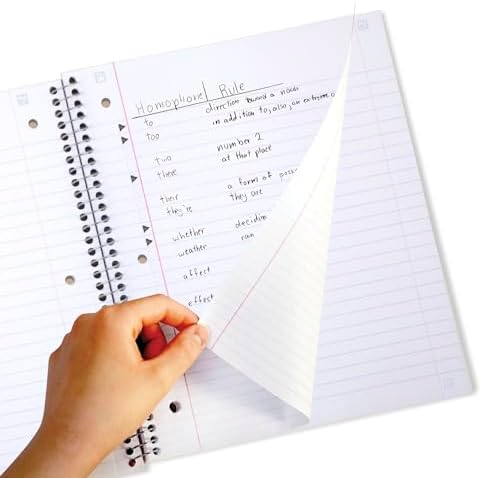 Homophone Rule
to direction toward a noun
too in addition to, also, an extreme
two number 2
there at that place
their a form of
they're they are
whether
weather
affect
effect